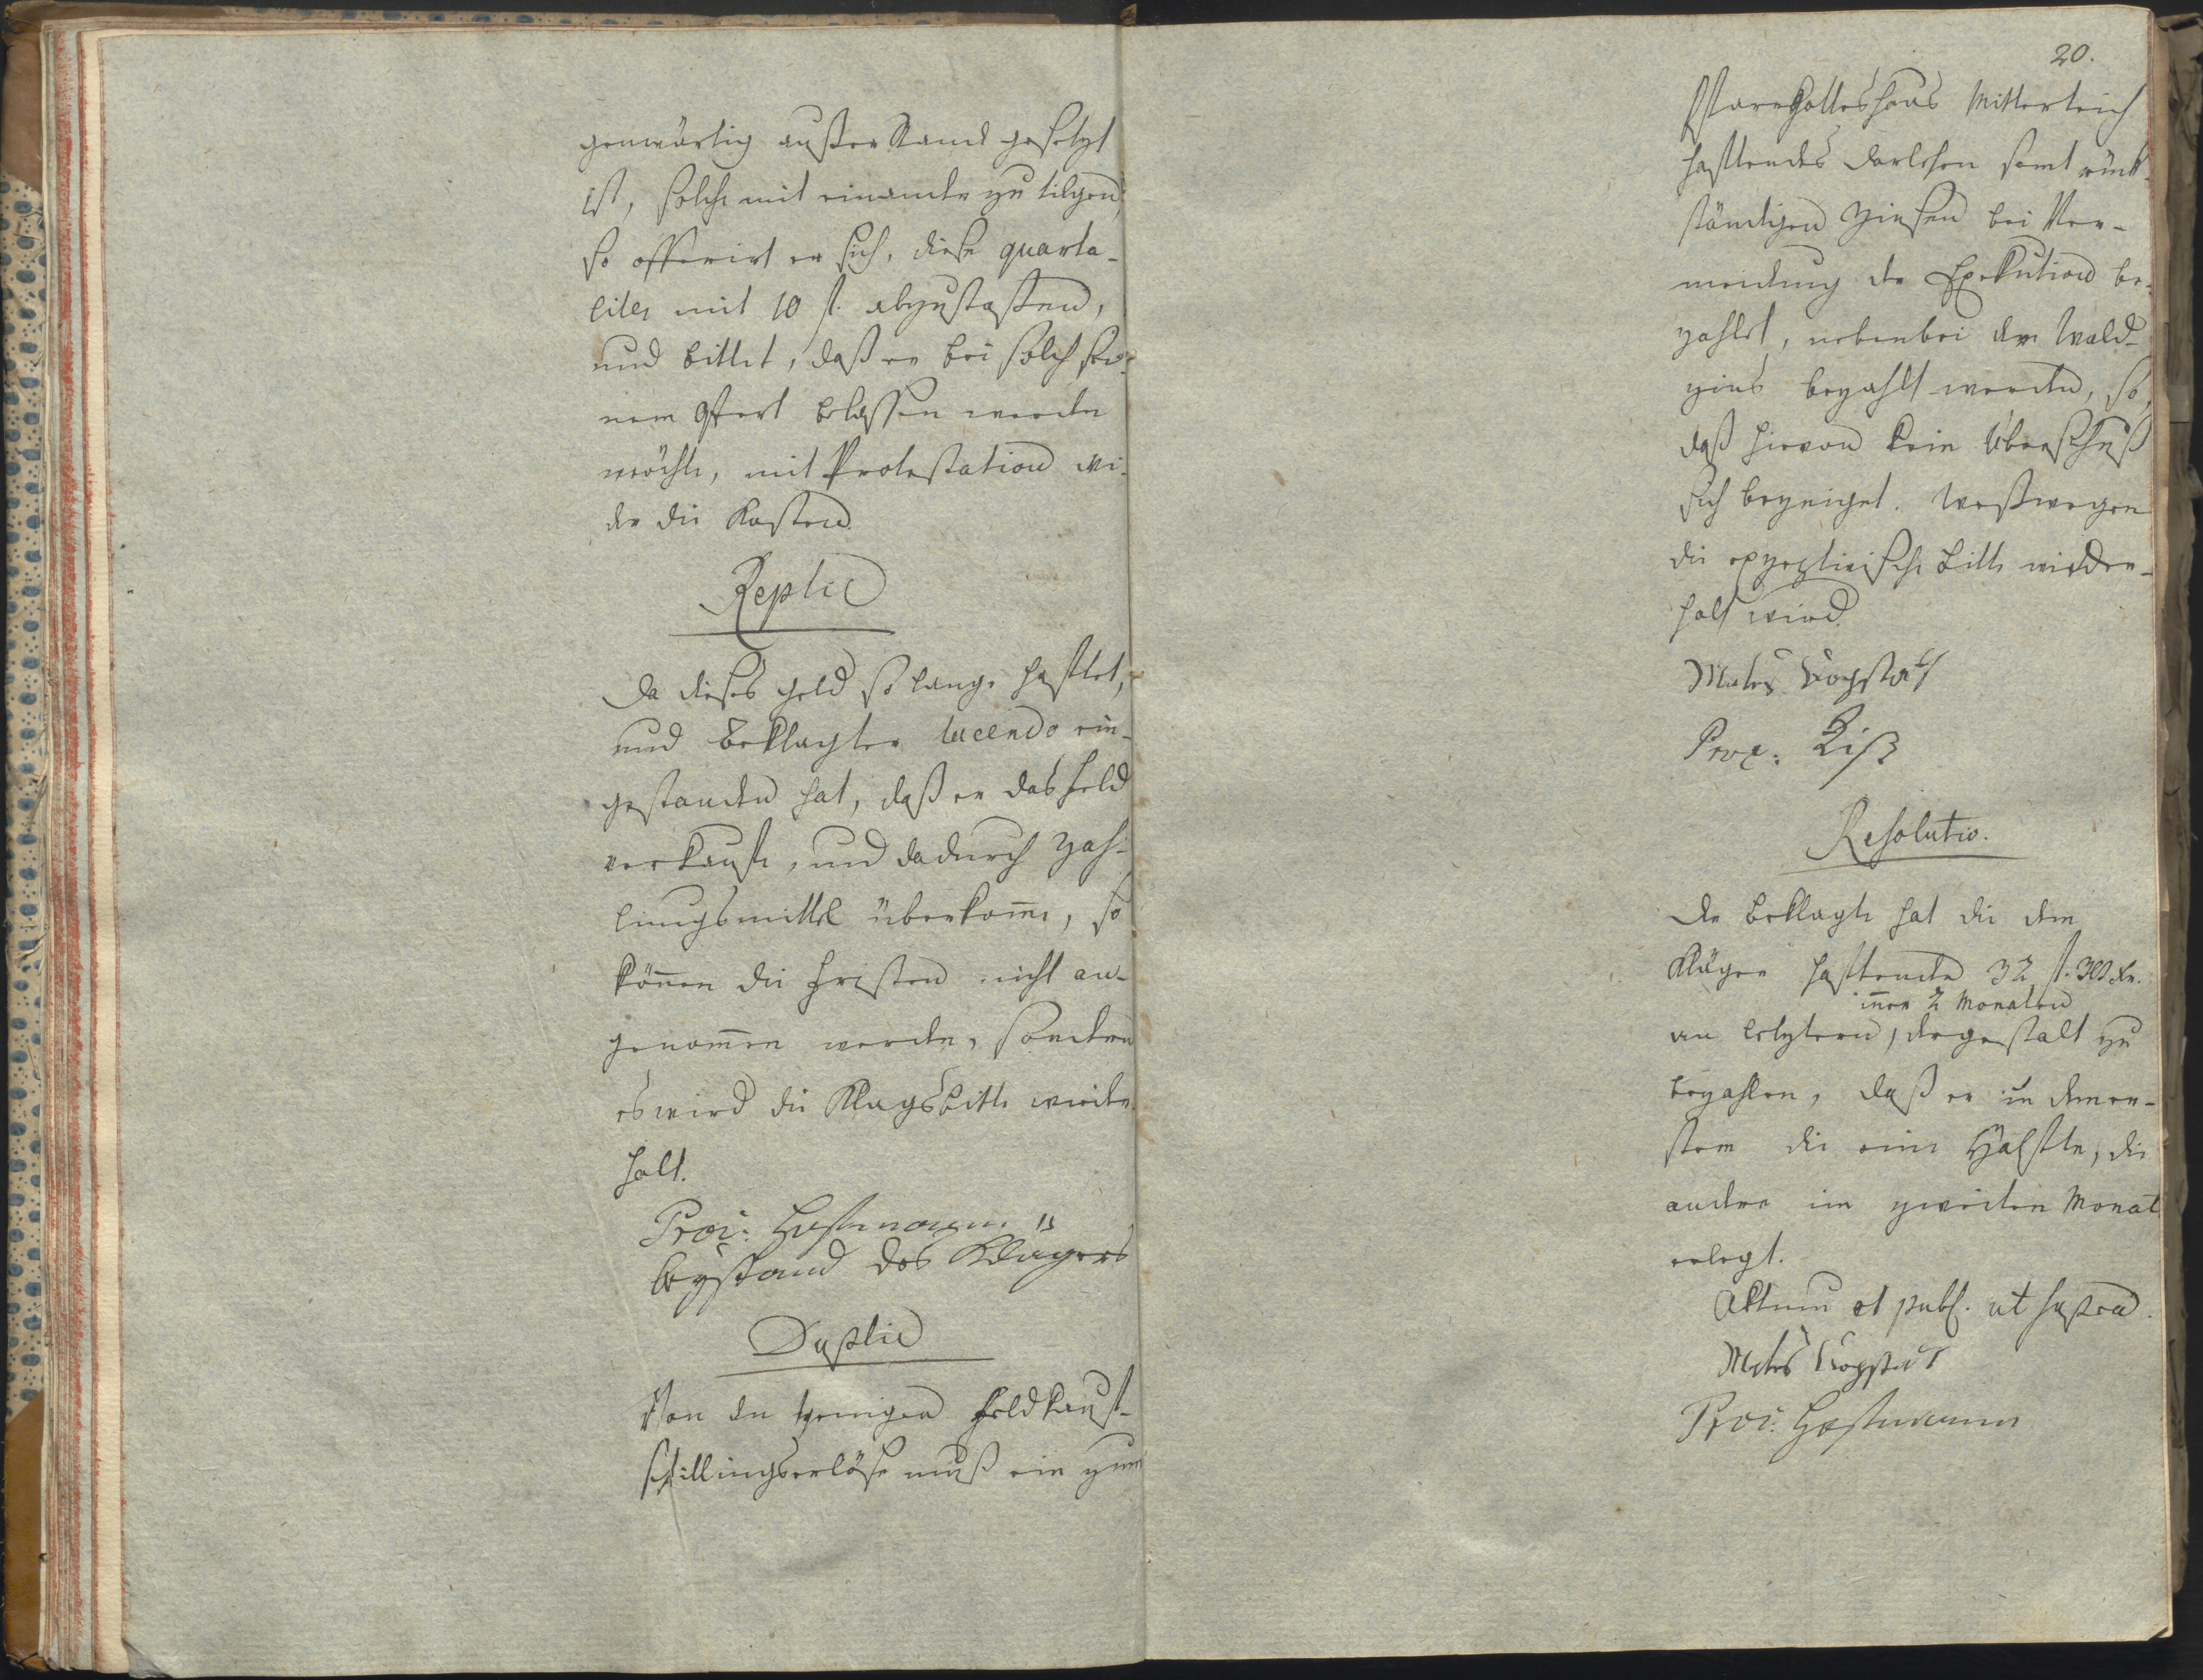 genwärtig außer Stand gesetzt
ist, solche mit einander zu tilgen,
so offerirt er sich, diese quarta-
liter mit 10 fl. abzustossen,
und bittet, daß er bei solch sei-
nem Offert belassen werden
möchte, mit Protestation wi-
der die Kosten.
Replic
Da dieses Geld so lange haftet,
und Beklagter tacendo ein-
gestanden hat, daß er das Feld
verkaufte, und dadurch Zah-
lungsmittel überkomme, so
können die Fristen nicht an-
genommen werden, sondern
es wird die Klagsbitte wieder-
holt.
Proc: Hofmann
beystand des Klägers
Duplic
Von den wenigen Feldkauf-
schillingserlöse muß ein zum
20.
Pfarrgotteshaus Mitterteich
haftendes Darlehen samt rück-
ständigen Zinsen bei Ver-
meidung der Exekution be-
zahlt, nebenbei der Wald-
zins bezahlt werden, so,
daß hievon kein Überschuß
sich bezeiget. Weßwegen
die exzeptivische Bitte wieder-
holt wird.
Proc:
Resolutio.
Der Beklagte hat die dem
Kläger haftende 32 fl. 30 kr.
inner 2 Monaten
an letztern, dergestalt zu
bezahlen, daß er in dem er-
stern die eine Hälfte, die
andere im zweiten Monat
erlegt.
Aktum et publ. ut supra.
Proc: Hofmann